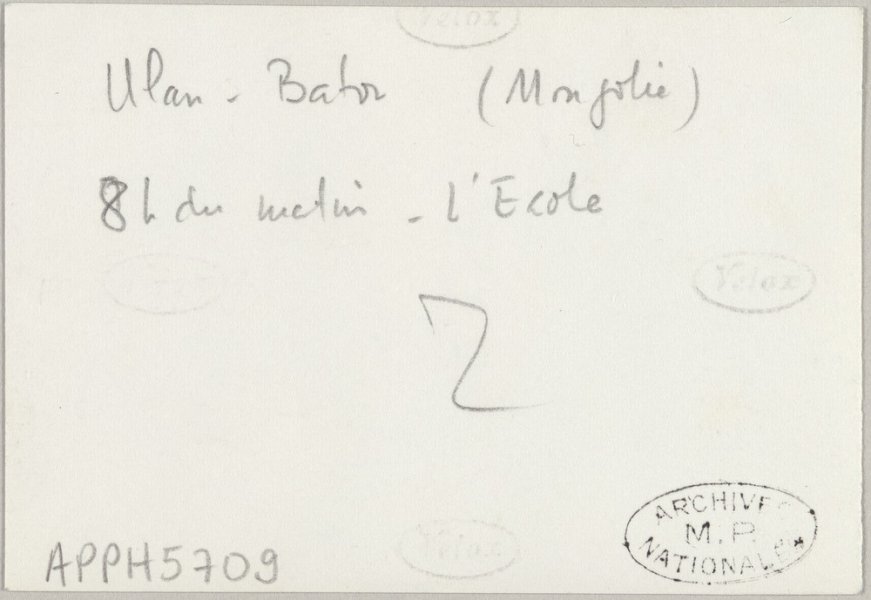 Velox
Ulan-Bator (Mongolie)
8h du matin - l'Ecole
Velox
Velox
2
APPH5709
ARCHIVES
M.P.
NATIONALES
Velox